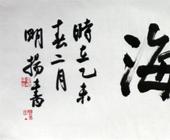 海
時在乙未
春二月
明揚書